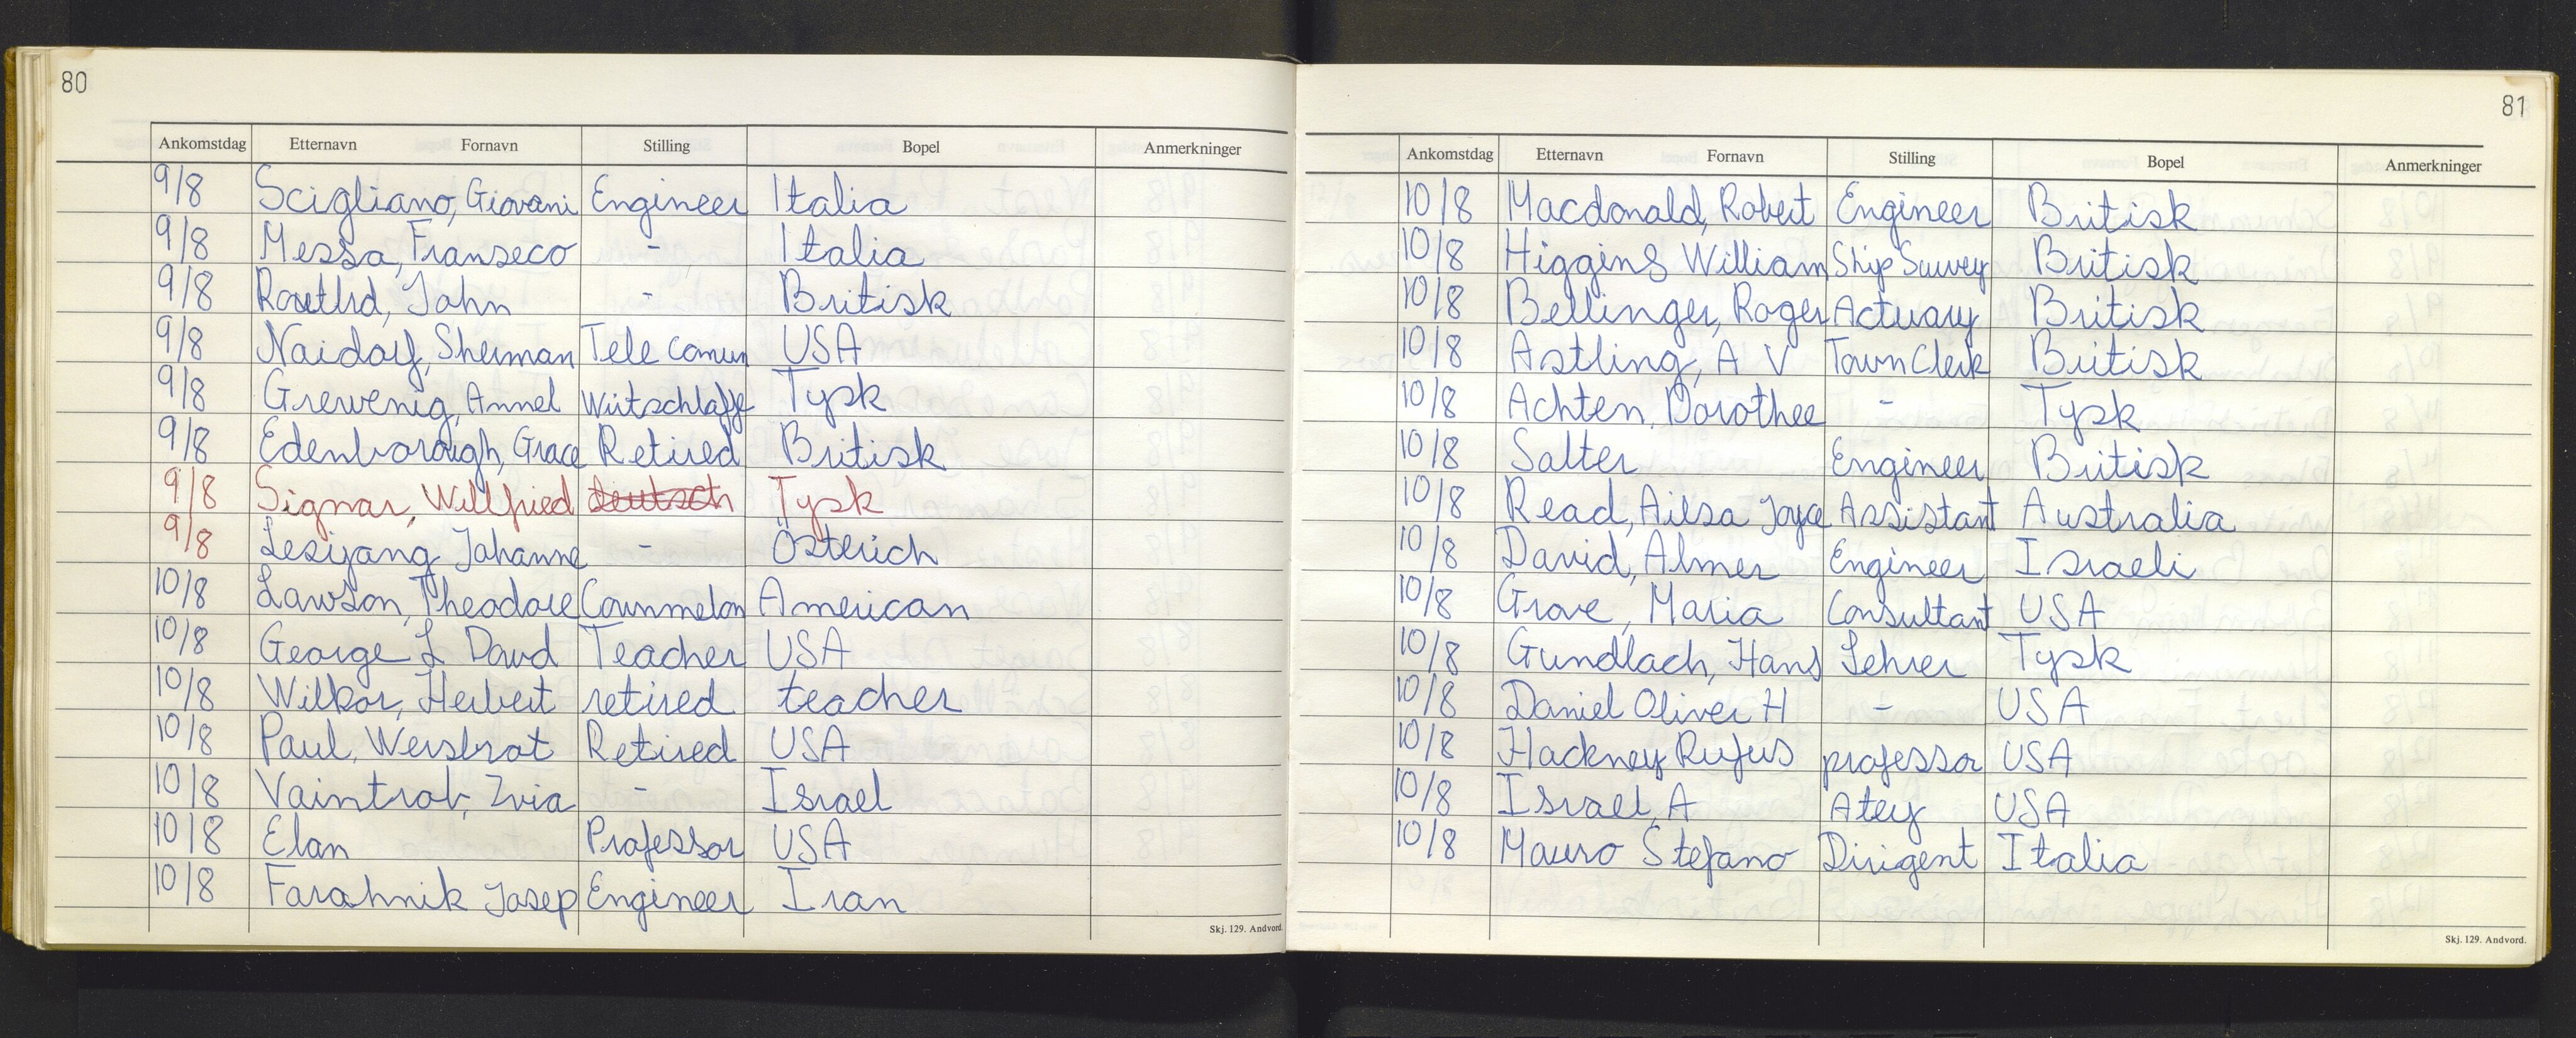 80
Ankomstdag Etternavn Fornavn Stilling Bopel Anmerkninger
9/8 Scigliano, Giovani Engineer Italia
9/8 Messa, Franseco - Italia
9/8 John - Britisk
9/8 Naidorf, Sherman Tele comun USA
9/8 Grewenig, Annel Tysk
9/8 Edenborough, Grace Retired Britisk
9/8 Signar, Willfried deutsch Tysk
9/8 Johanne - Österich
10/8 Lawson, Theodore American
10/8 George L Davd Teacher USA
10/8 Wilkor, Herbert retired teacher
10/8 Paul, Weisbrot Retired USA
10/8 Vaintrob, Zvia - Israel
10/8 Elan Professor USA
10/8 Farahnik Josep Engineer Iran
Skj. 129. Andvord.
81
Ankomstdag Etternavn Fornavn Stilling Bopel Anmerkninger
10/8 Macdonald, Robert Engineer Britisk
10/8 Higgins William Ship Survey Britisk
10/8 Bellinger, Roger Actuary Britisk
10/8 Astling, A V Town Clerk Britisk
10/8 Achten, Dorothee - Tysk
10/8 Salter Engineer Britisk
10/8 Read, Ailsa Joyce Assistant Australia
10/8 David, Almer Engineer Israeli
10/8 Grove, Maria Consultant USA
10/8 Gundlach, Hans Lehrer Tysk
10/8 Daniel Oliver H - USA
10/8 Hackney Rufus professor USA
10/8 Israel, A Atey USA
10/8 Mauro Stefano Dirigent Italia
Skj. 129. Andvord.